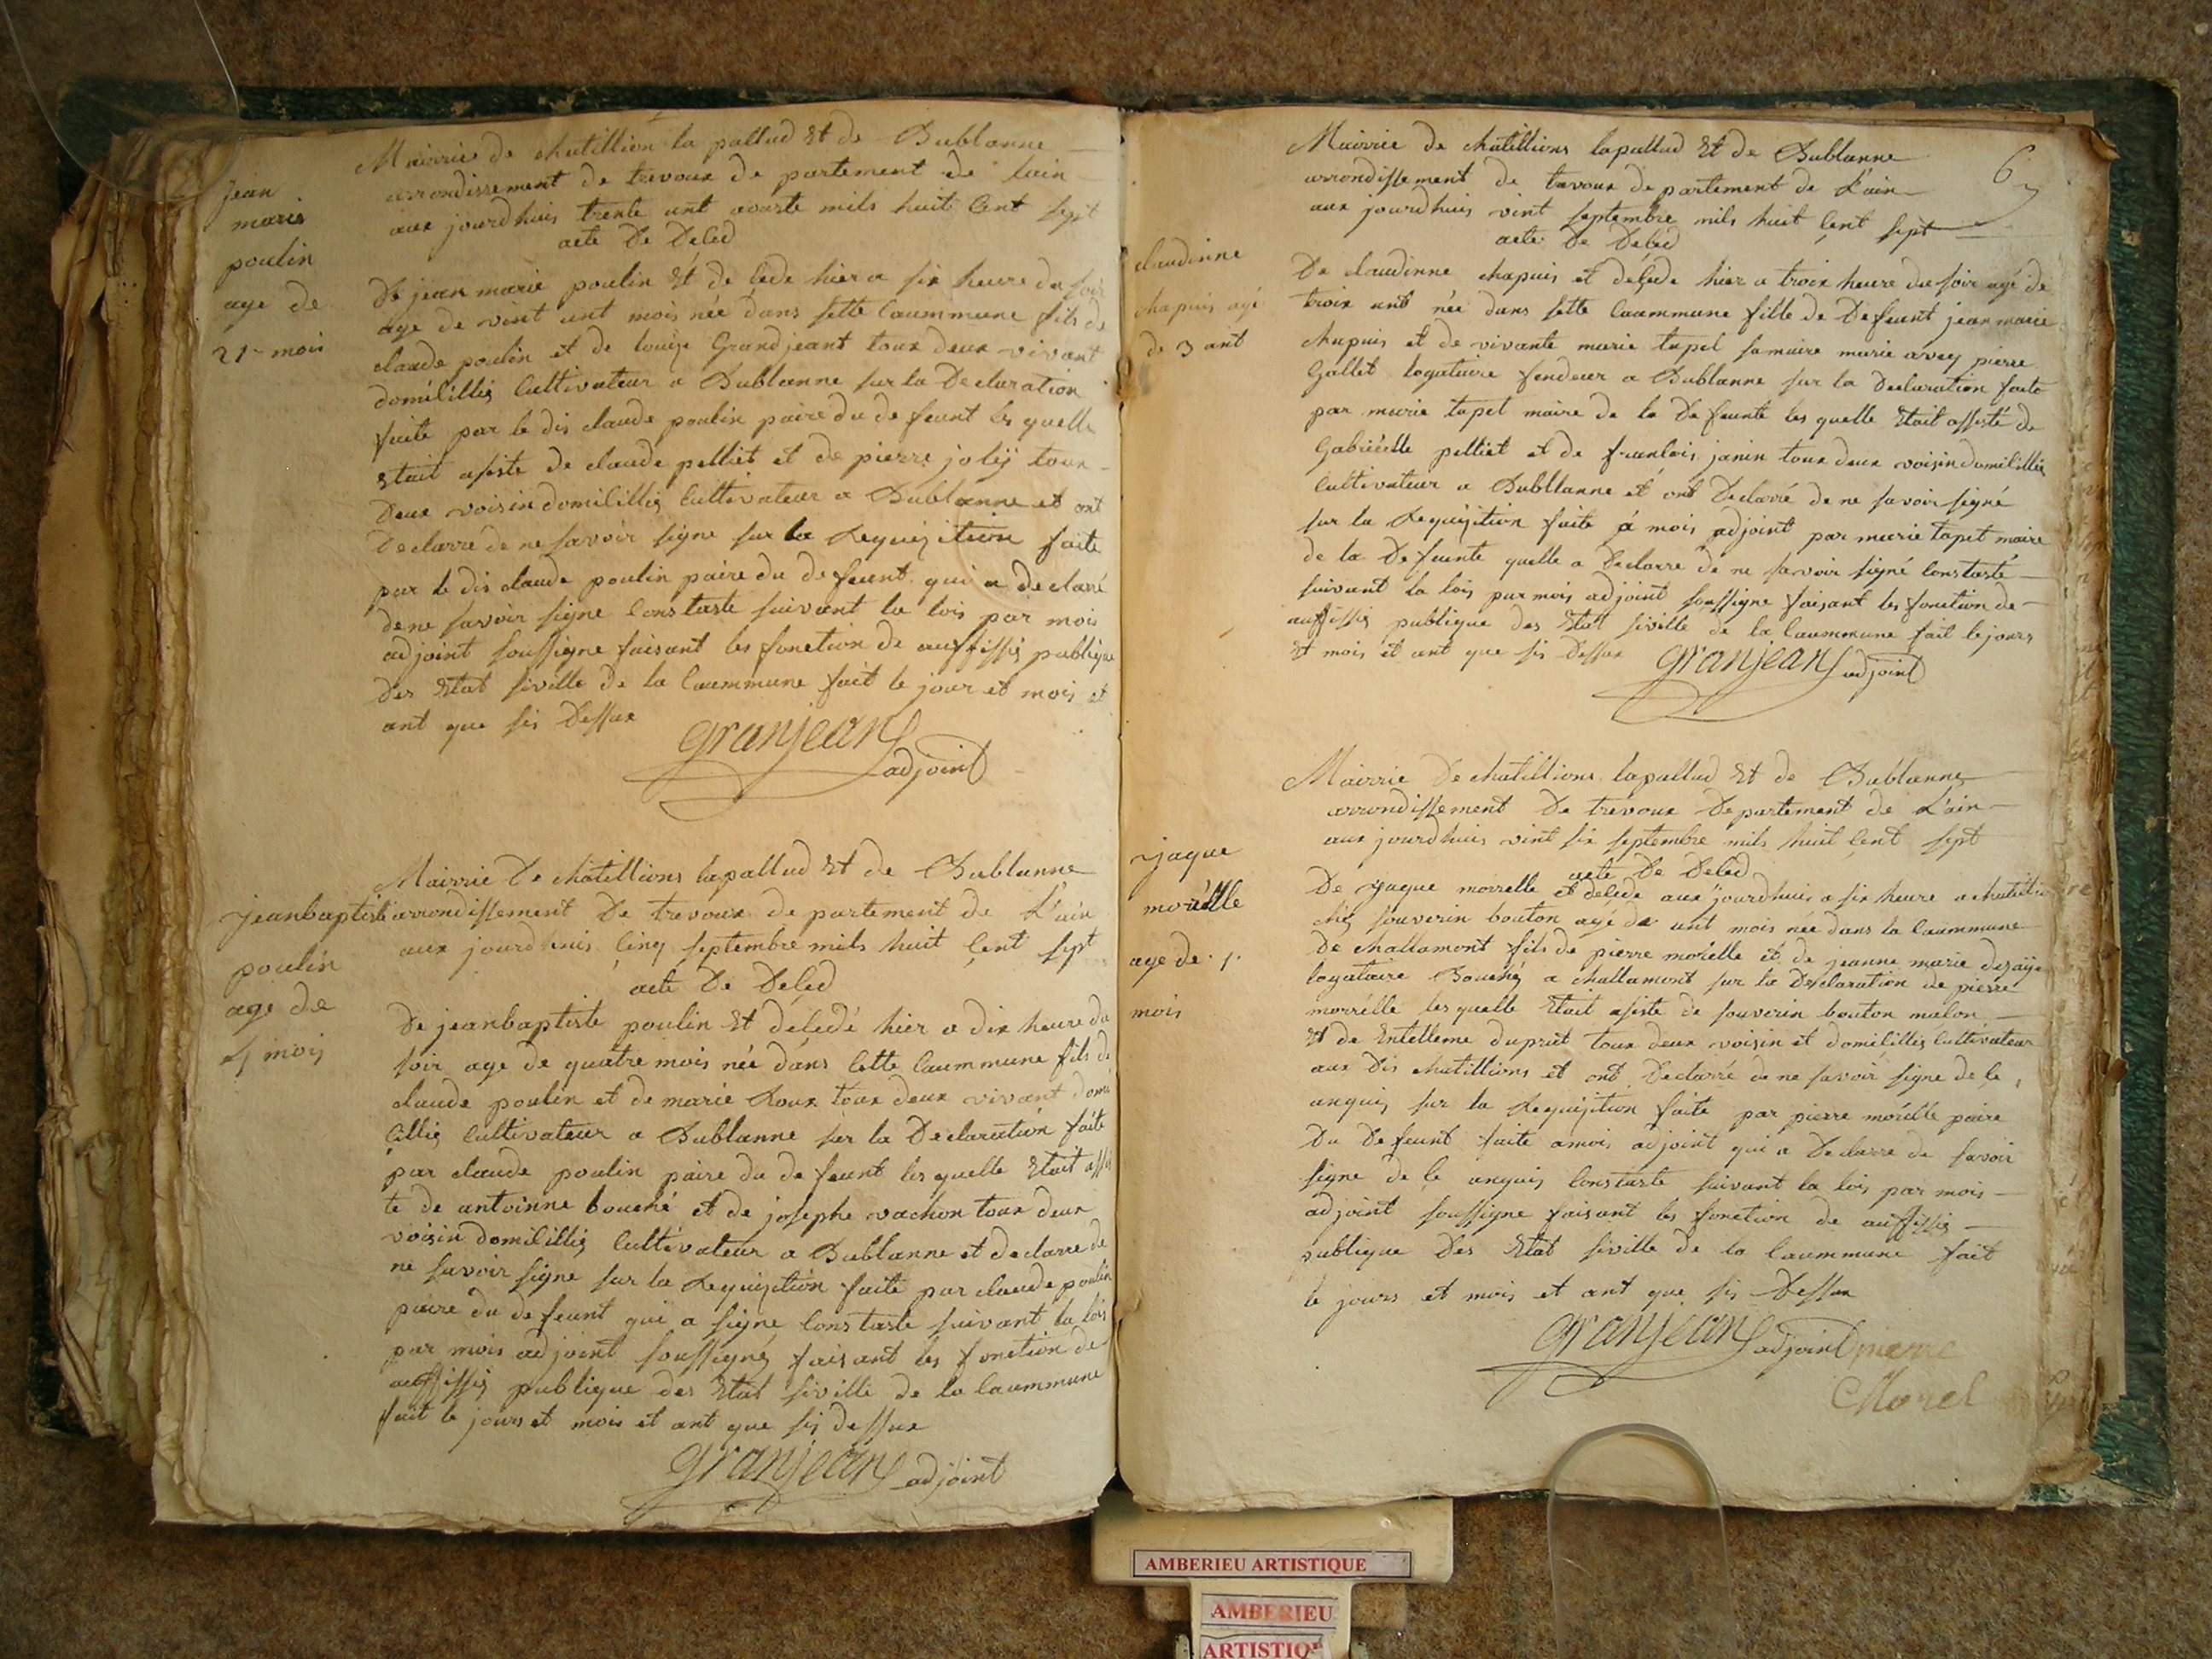 Mairrie de chatillion la pallud Et de Bublanne
arrondissement de trevoux de partement de lain
aux jourdhuis trente unt avoute mils huit Cent sept
acte De Deled
jean
marie
poulin
age de
21 mois
De jean marie poulin Et de lede hier a six heure du soir
age de vint unt mois née dans sette Caummune fils de
claude poulin et de louise Grandjeant toux deux vivant
domélilliés Cultivateur a Bublanne sur la Declaration
faite par le dis claude poulin paire du de feunt les quelle
Etait asiste de claude pelliet et de pierre joly toux
Deux voisin domilillis Cultivateur a Bublanne et ont
Declarre de ne savoir signe sur la Requizition faite
par le dis claude poulin paire du defeunt qui a declaré
dene savoir signe Constaste suivant la lois par mois
adjoint soussigne faisant les fonction de auffissis publique
Des Etat siville de la Caummune fait le jour et mois et
ant que sis Dessux
granjean
adjoint
Mairrie De chatillions lapallud Et de Bublanne
arrondissement De trevoux de partement de L'ain
aux jourdhuis Cinq septembre mils huit Cent sept
acte De Deled
jeanbaptiste
poulin
agé de
4 mois
De jeanbaptiste poulin Et deledé hier a dix heure du
soir age de quatre mois née dans Cette Caummune fils de
claude poulin et de marie Roux toux deux vivant domi
Cillis Cultivateur a Bublanne sur la Declaration faite
par claude poulin paire du de feunt les quelle Etait assis
te de antoinne bouché et de josephe vachon toux deux
voisin domilillis Cultivateur a Bublanne et declarre de
ne savoir signe sur la Requizition faite par claude poulin
paire du de feunt qui a signé Constaste suivant la lois
par mois adjoint soussigné faisant les fonction de
auffissis publique des Etat siville de la Caummune
fait le jours et mois et ant que sis dessux
granjean adjoint
Mairrie de chatillions lapallud Et de Bublanne
arrondissement de trevoux de partement de L'ain
aux jourdhuis vint septembre mils huit Cent sept
acte De Deled
6
claudinne
chapuis agé
de 3 ant
De claudinne chapuis et deledé hier a troix heure du soir agé de
troix ant née dans sette Caummune fille de Defeunt jean marie
chapuis et de vivante marie tapet samaire marie avey pierre
Gallet logataire fendeur a Bublanne sur la Declaration faite
par marie tapet maire de la De feunte les quelle Etait assisté de
Gabriélle pelliet et de franlois janin toux deux voisin domilillis
Cultivateur a Bubllanne et ont Declarré de ne savoir signé
sur la Requizition faite a mois adjoint par marie tapet maire
de la De feunte quelle a Declarre de ne savoir signé Constasté
suivant la lois par mois adjoint soussigne faisant les fonction de
auffissis publique des Etat siville de la Caummune fait le jours
Et mois et ant que sis Dessux granjean adjoint
Mairrie De chatillions lapallud Et de Bublanne
arrondissement De trevoux Departement de L'ain
aux jourdhuis vint six septembre mils huit Cent sept
acte De Deled
jaque
morélle
age de 1
mois
De jaque morrelle et deledé aux jourdhuis a six heure a chatillion
chés souverin bouton agé de unt mois née dans la Caummune
De challamont fils de pierre morélle et de jeanne marie
logataire Bouché a challamont sur la Declaration de pierre
morrélle les quelle Etait asiste de souverin bouton malon
Et de Entelleme duprat toux deux voisin et domilillis Cultivateur
aux Dis chatillions et ont Declarré de ne savoir signe de le
anquis sur la Requizition faite par pierre morélle paire
Du De feunt faite a mois adjoint qui a Declarre de savoir
signe de le anquis Constaste suivant la lois par mois
adjoint soussigne faisant les fonction de auffissis
publique Des Etat siville de la Caummune fait
le jours et mois et ant que sis Dessux
granjean adjoint pierre
Morel
AMBERIEU ARTISTIQUE
AMBERIEU
ARTISTIQU